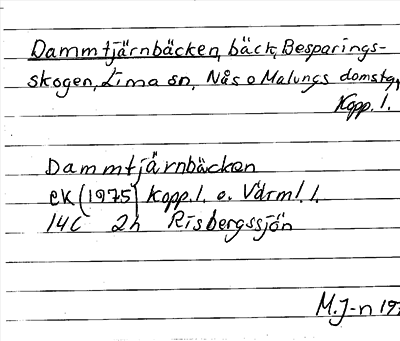 Dammtjärnbäcken, bäck, Besparings-
skogen, Lima sn, Nås o Malungs domstg,
Kopp. l.
Dammtjärnbäcken
ek (1975) Kopp. l. o. Värml. l.
14C 2h Risbergssjön
M.J-n 197